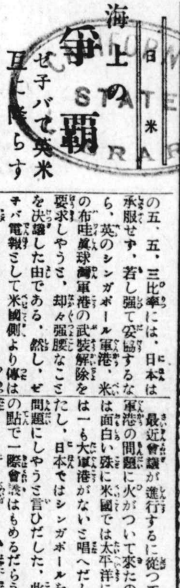 日米
海上の
争覇
ゼ子バで英米
互に降らす
の五、五、三比率には、日本は
承服せず、若し强て妥協するな
ら、英のシンガポール軍港、米
の布哇眞珠灣軍港の武装解除を
要求しやうと、却々强腰なこと
を決議した由である、然し、ゼ
子バ電報として米國側より傳は
最近會議が進行するに從つ
軍港の問題に火がついて來たの
は面白い殊に米國では太平洋と
は一も大軍港がないと唱へだし
たし、日本ではシンガポールを
問題にしやうと言ひだした、此
の點で一際會議はもめるだらう
STATE